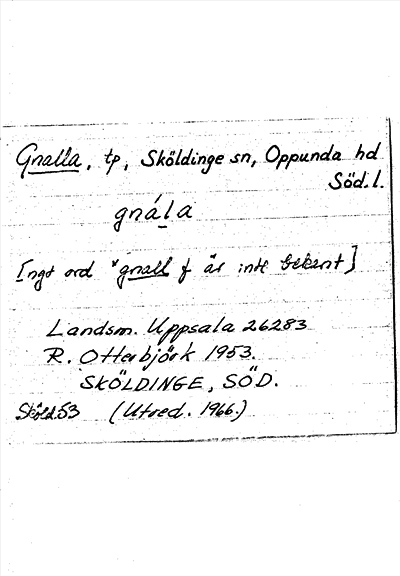 Gnalla, tp, Sköldinge sn, Oppunda hd
Söd.l.
gnála
[ngt ord *gnall f är inte bekant]
Landsm. Uppsala 26283
R. Otterbjörk 1953.
SKÖLDINGE, SÖD.
Sköld.53 (Utred. 1966.)